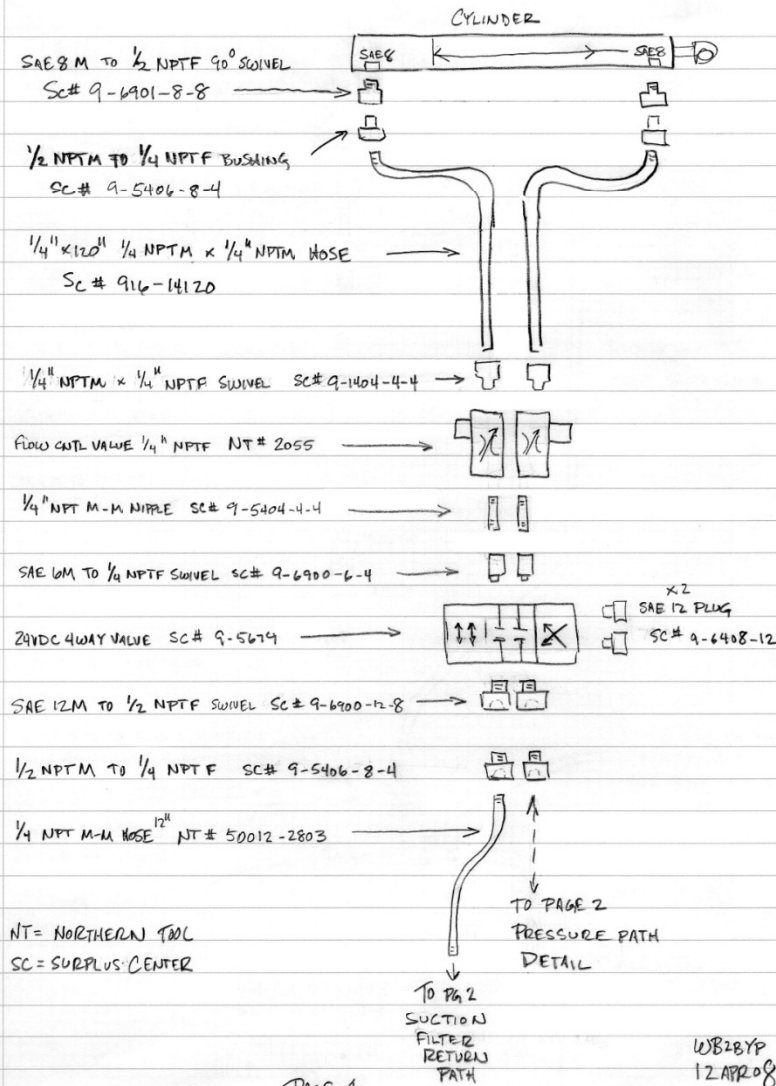 CYLINDER
SAE8 SAE8
SAE 8 M TO 1/2 NPTF 90° SWIVEL
SC# 9-6901-8-8
1/2 NPTM TO 1/4 NPTF BUSHING
SC # 9-5406-8-4
1/4" x 120" 1/4 NPTM x 1/4" NPTM HOSE
SC # 916-14120
1/4" NPTM x 1/4" NPTF SWIVEL SC# 9-1404-4-4
FLOW CNTL VALVE 1/4" NPTF NT # 2055
1/4" NPT M-M NIPPLE SC# 9-5404-4-4
SAE 6M TO 1/4 NPTF SWIVEL SC# 9-6900-6-4
x2
SAE 12 PLUG
SC# 9-6408-12
24VDC 4WAY VALVE SC# 9-5679
SAE 12M TO 1/2 NPTF SWIVEL SC# 9-6900-12-8
1/2 NPTM TO 1/4 NPTF SC# 9-5406-8-4
1/4 NPT M-M HOSE 12" NT# 50012-2803
TO PAGE 2
PRESSURE PATH
DETAIL
NT = NORTHERN TOOL
SC = SURPLUS CENTER
TO PG 2
SUCTION
FILTER
RETURN
PATH
WB2BYP
12 APR 08